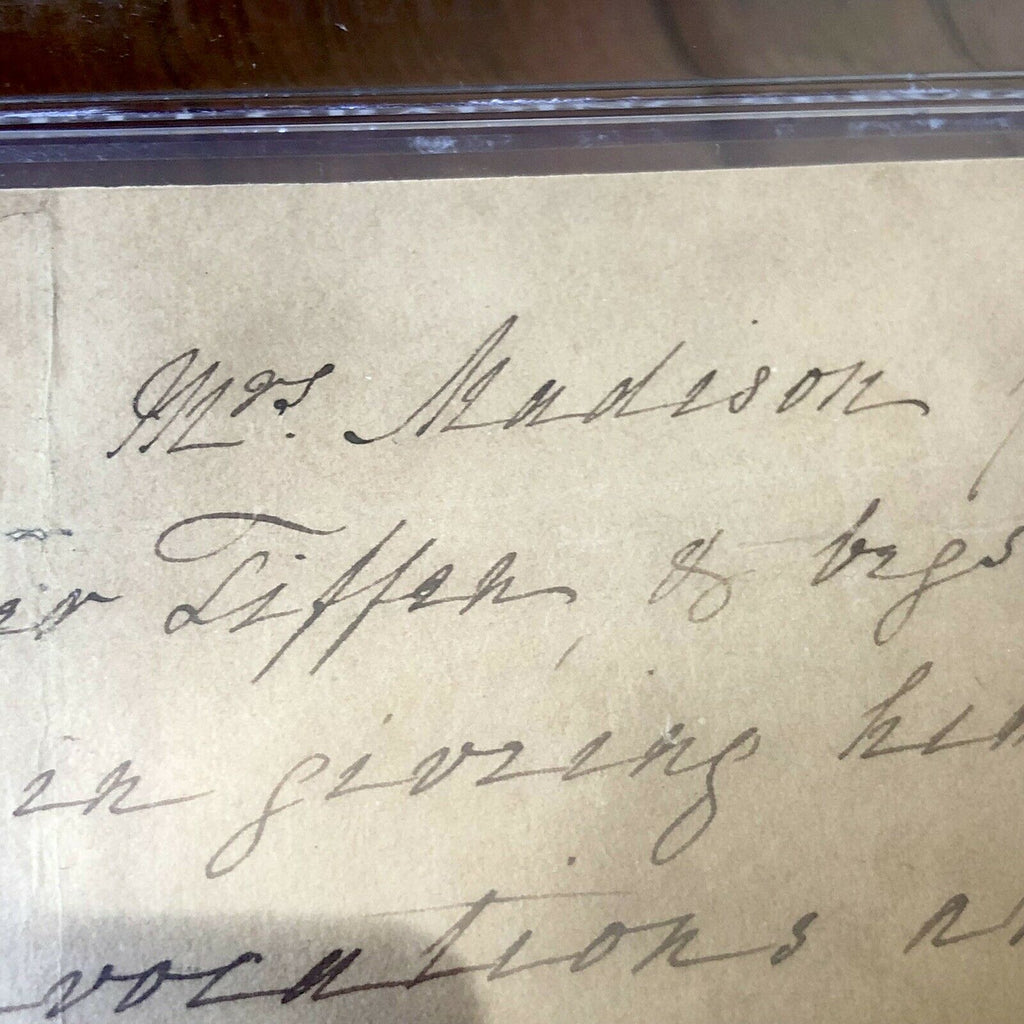 Mrs. Madison
Tiffen, & begs
in giving him
vocations